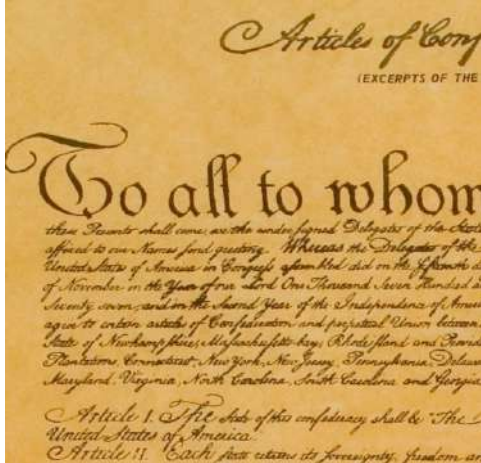 Articles of Conf
(EXCERPTS OF THE
To all to whom
these Presents shall come, we the under signed Delegates of the State
affixed to our Names send greeting. Whereas the Delegates of the
United States of America in Congress assembled did on the fifteenth d
of November in the Year of our Lord One Thousand Seven Hundred a
Seventy seven, and in the Second Year of the Independence of Ameri
agree to certain articles of Confederation and perpetual Union between
States of Newhampshire, Massachusetts-bay, Rhode island and Provid
Plantations, Connecticut, New York, New Jersey, Pennsylvania, Delawa
Maryland, Virginia, North Carolina, South Carolina and Georgia
Article I. The stile of this confederacy shall be "The
United States of America.
Article II. Each state retains its sovereignty, freedom an